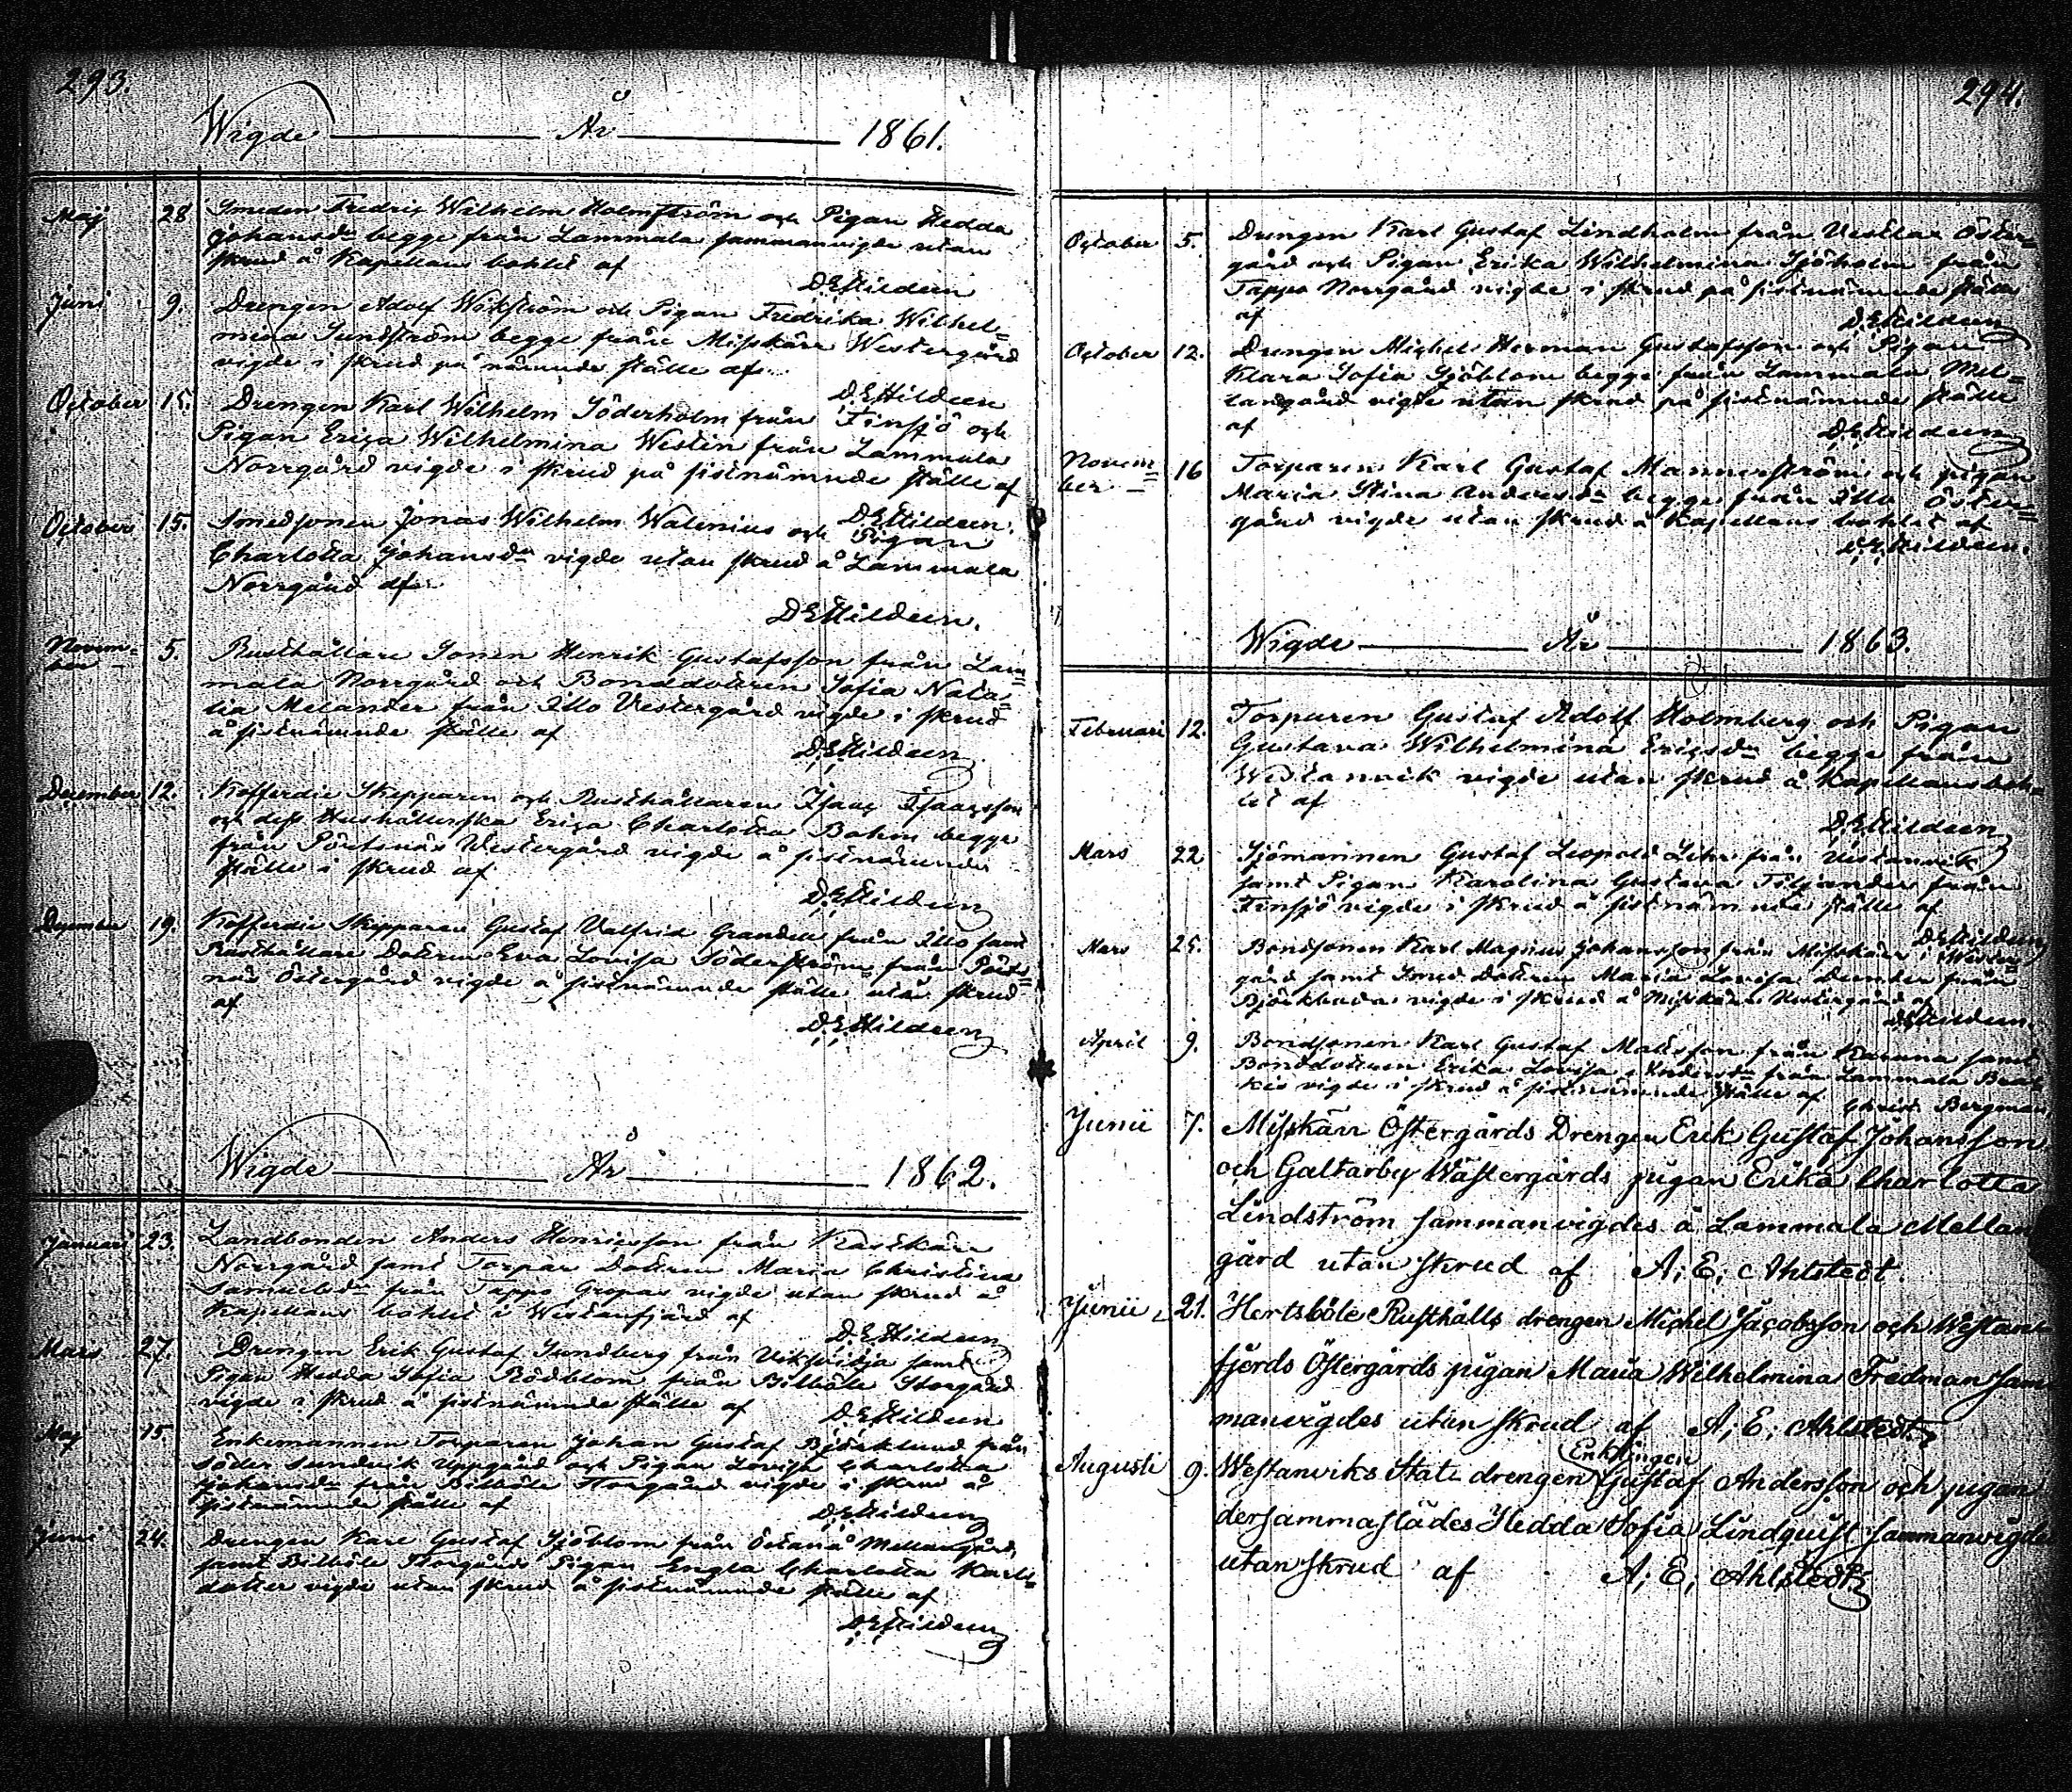 293.
Wigde År 1861.
Maij 28 Smeden Fredric Wilhelm Holmström och Pigan Hedda
Johansdr begge från Lammala sammanvigde utan
skrud å Kapellans bohlet af
D.E.Hildeen
Juni 9. Drengen Adolf Wikström och Pigan Fredrika Wilhel=
mina Sundström begge från Misskärr Westergård
vigde i skrud på nämnde ställe af
D.E.Hildeen
October 15. Drengen Karl Wilhelm Söderholm från Finsjö och
Pigan Erica Wilhelmina Westin från Lammala
Norrgård vigde i skrud på sistnämnde ställe af
D.E.Hildeen.
October 15. Smedsonen Jonas Wilhelm Walenius och Pigan
Charlotta Johansdr vigde utan skrud å Lammala
Norrgård af
D.E.Hildeen.
Novem=
ber 5. Rusthållare Sonen Henrik Gustafsson från Lam=
mala Norrgård och Bonddottren Sofia Nata=
lia Melander från Illo Vestergård vigde i skrud
å sistnämnde ställe af
D.E.Hildeen
December 12. Kofferdie Skepparen och Rusthållaren Isaac Isaacsson
och dess Hushållerska Erica Charlotta Bohm begge
från Pörtsnäs Westergård vigde å sistnämnde
ställe i skrud af
D.E.Hildeen
December 19. Kofferdie Skepparen Gustaf Valfrid Grandell från Illo samt
Rusthållare Dottren Eva Lovisa Söderström från Pörts=
näs Östergård vigde å sistnämnde ställe utan skrud
af
D.E.Hildeen
Wigde År 1862.
Januari 23. Landbonden Anders Henricsson från Kastkärr
Norrgård samt Torpar Dottren Maria Christina
Samuelsdr från Tappo Gropas vigde utan skrud å
Kapellans bohlet i Westanfjärd af
D.E.Hildeen
Mars 27. Drengen Erik Gustaf Sundberg från samt
Pigan Hedda Sofia Rödblom från Billböle Storgård
vigde i skrud å sistnämnde ställe af
D.E.Hildeen
Maj 15. Enkemannen Torparen Johan Gustaf Björklund från
Söder Sundvik Uppgård och Pigan Lovisa Charlotta
Johansdr från Billböle Storgård vigde i skrud å
sistnämnde ställe af
D.E.Hildeen
Juni 24. Drengen Karl Gustaf Sjöblom från Östanå Mellangård,
samt Billböle Storgårds Pigan Engla Charlotta Karls=
dotter vigde utan skrud å sistnämnde ställe af
D.E.Hildeen
294.
October 5. Drengen Karl Gustaf Lindholm från Vestlax Öster=
gård och Pigan Erika Wilhelmina Sjöholm från
Tappo Norrgård vigde i skrud på sistnämnde ställe
af
D.E.Hildeen
October 12. Drengen Michel Herman Gustafsson och Pigan
Klara Sofia Sjöblom begge från Lammala Mel=
langård vigde utan skrud på sistnämnde ställe
af
D.E.Hildeen
Novem=
ber 16 Torparen Karl Gustaf Mannerström och pigan
Maria Stina Andersdr begge från Illo Öster=
gård vigde utan skrud å Kapellans bohlet af
D.E.Hildeen.
Wigde År 1863.
Februari 12. Torparen Gustaf Adolf Holmberg och Pigan
Gustava Wilhelmina Ericsdr begge från
Westanvik vigde utan skrud å Kapellansboh=
let af
D.E.Hildeen
Mars 22 Sjömannen Gustaf Leopold från Vestanvik
samt Pigan Karolina Gustava Tiljander från
Finsjö vigde i skrud å sistnämnde ställe af
D.E.Hildeen
Mars 25. Bondsonen Karl Magnus Johansson från Misskärr Wester=
gård samt Smed Dottren Maria Lovisa från
Björkboda vigde i skrud å Misskärr Westergård af
D.E.Hildeen.
April 9. Bondsonen Karl Gustaf Mattsson från Karuna samt
Bonddottren Erika Lovisa Andersdr från Lammala
vigde i skrud å sistnämnde ställe af Christ. Bergman
Junii 7. Misskärr Östergårds Drengen Erik Gustaf Johansson
och Galtarby Wästergårds pigan Erika Charlotta
Lindström sammanvigdes å Lammala Mellan
gård utan skrud af A; E; Ahlstedt.
Junii 21. Hertsböle Rusthålls drengen Michel Jacobsson och Westan
fjerds Östergårds pigan Maria Wilhelmina Fredman sam
manvigdes utan skrud af A; E; Ahlstedt
Enklingen
Augusti 9. Westanviks Stats drengen Gustaf Andersson och pigan
dersammastädes Hedda Sofia Lindquist sammanvigde
utan skrud af A; E; Ahlstedt